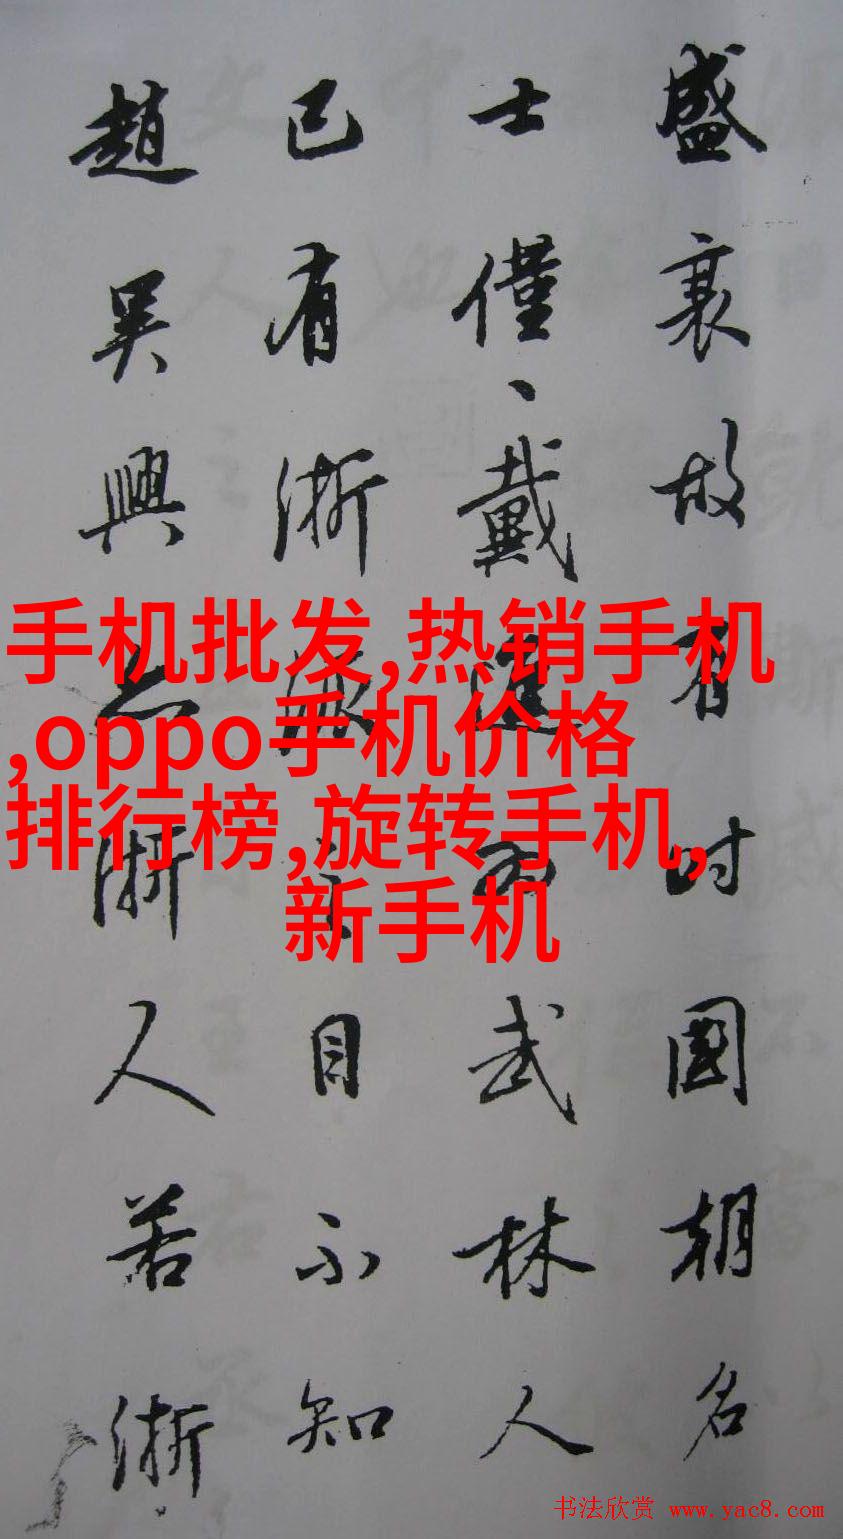 盛衰故有时國朝名
士僅、戴進為武林人
已有浙派之目不知
趙吳興亦浙人若浙
手机批发,热销手机
,oppo手机价格
排行榜,旋转手机,
新手机
书法欣赏 www.yac8.com